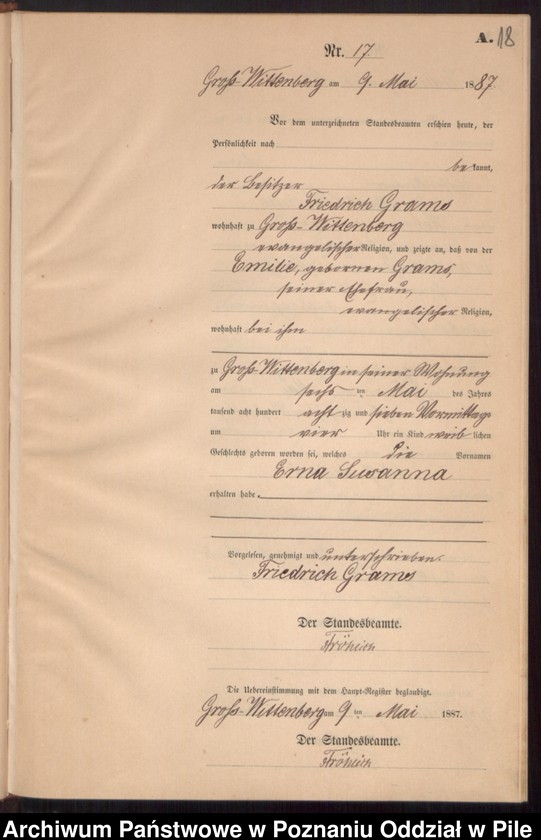 A. 18
Nr. 17
Groß-Wittenberg am 9. Mai 1887.
Vor dem unterzeichneten Standesbeamten erschien heute, der
Persönlichkeit nach
bekannt,
der Besitzer
Friedrich Grams
wohnhaft zu Groß-Wittenberg
evangelischer Religion, und zeigte an, daß von der
Emilie, gebornen Grams,
seiner Ehefrau,
evangelischer Religion,
wohnhaft bei ihm
zu Groß-Wittenberg in seiner Wohnung
am sechsten Mai des Jahres
tausend acht hundert achtzig und sieben Vormittags
um vier Uhr ein Kind weiblichen
Geschlechts geboren worden sei, welches die Vornamen
Erna Susanna
erhalten habe.
Vorgelesen, genehmigt und unterschrieben.
Friedrich Grams
Der Standesbeamte.
Fröhlich
Die Uebereinstimmung mit dem Haupt-Register beglaubigt.
Groß-Wittenberg am 9ten Mai 1887.
Der Standesbeamte.
Fröhlich
Archiwum Państwowe w Poznaniu Oddział w Pile